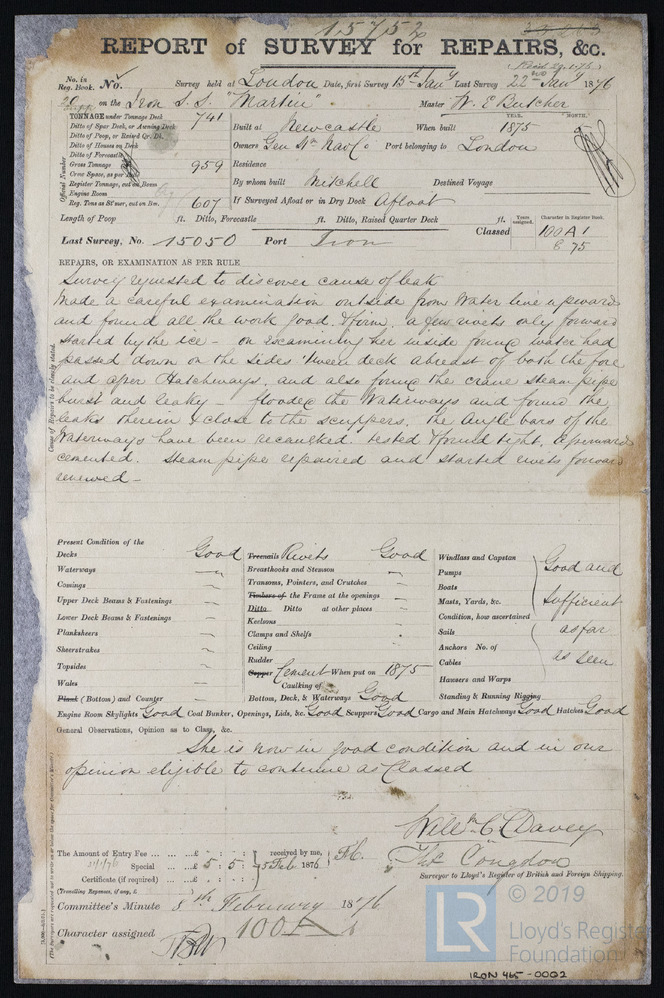 15752
REPORT of SURVEY for REPAIRS, &c.
No. in Reg. Book. No. Survey held at London Date, first Survey 15th Jany Last Survey 22nd Jany 1876
on the Iron S.S. "Martin" Master W. E. Butcher
TONNAGE under Tonnage Deck 741
Ditto of Spar Deck, or Awning Deck
Ditto of Poop, or Raised Qr. Dk.
Ditto of Houses on Deck
Ditto of Forecastle
Gross Tonnage 959
Crew Space, as per
Register Tonnage, cut on Beam
Engine Room
Reg. Tons as St'mer, cut on Bm. 607
Official Number
Built at Newcastle When built 1875
YEAR. MONTH.
Owners Gen Stm Nav Co Port belonging to London
Residence
By whom built Mitchell Destined Voyage
If Surveyed Afloat or in Dry Dock Afloat
Length of Poop ft. Ditto, Forecastle ft. Ditto, Raised Quarter Deck ft.
Years Assigned. Character in Register Book.
Classed 100 A 1
8 75
Last Survey, No. 15050 Port Iron
REPAIRS, OR EXAMINATION AS PER RULE
Cause of Repairs to be clearly stated.
Survey requested to discover cause of leak
Made a careful examination outside from Water line upward
and found all the work good & firm, a few rivets only forward
started by the ice - on examining her inside found water had
passed down on the sides 'tween deck abreast of both the fore
and after Hatchways, and also found the crane steam pipe
burst and leaky - flooded the Waterways and found the
leaks therein & close to the scuppers, the angle bars of the
Waterways have been recaulked, tested & found tight, afterwards
cemented. Steam pipe repaired and started rivets forward
renewed -
Present Condition of the
Decks Good
Waterways
Comings
Upper Deck Beams & Fastenings
Lower Deck Beams & Fastenings
Planksheers
Sheerstrakes
Topsides
Wales
Plank (Bottom) and Counter
Treenails Rivets Good
Breasthooks and Stemson
Transoms, Pointers, and Crutches
Timbers of the Frame at the openings
Ditto Ditto at other places
Keelsons
Clamps and Shelfs
Ceiling
Rudder
Copper Cement When put on 1875
Caulking of
Bottom, Deck, & Waterways Good
Windlass and Capstan
Pumps
Boats
Masts, Yards, &c.
Condition, how ascertained
Sails
Anchors No. of
Cables
Hawsers and Warps
Standing & Running Rigging
Good and
sufficient
as far
as seen
Engine Room Skylights Good Coal Bunker, Openings, Lids, &c. Good Scuppers Good Cargo and Main Hatchways Good Hatches Good
General Observations, Opinion as to Class, &c.
She is now in good condition and in our
opinion eligible to continue as Classed
Willm C C Davey
Thos Congdon
Surveyor to Lloyd's Register of British and Foreign Shipping.
The Amount of Entry Fee ... ... £ : :
Special ... ... £ 5 : 5 :
Certificate (if required) ... £ : :
(Travelling Expenses, if any, £ )
received by me,
5 Feb 1876
Committee's Minute 8th February 1876
Character assigned 100 A 1
© 2019
LR
Lloyd's Register
Foundation
IRON 465-0002